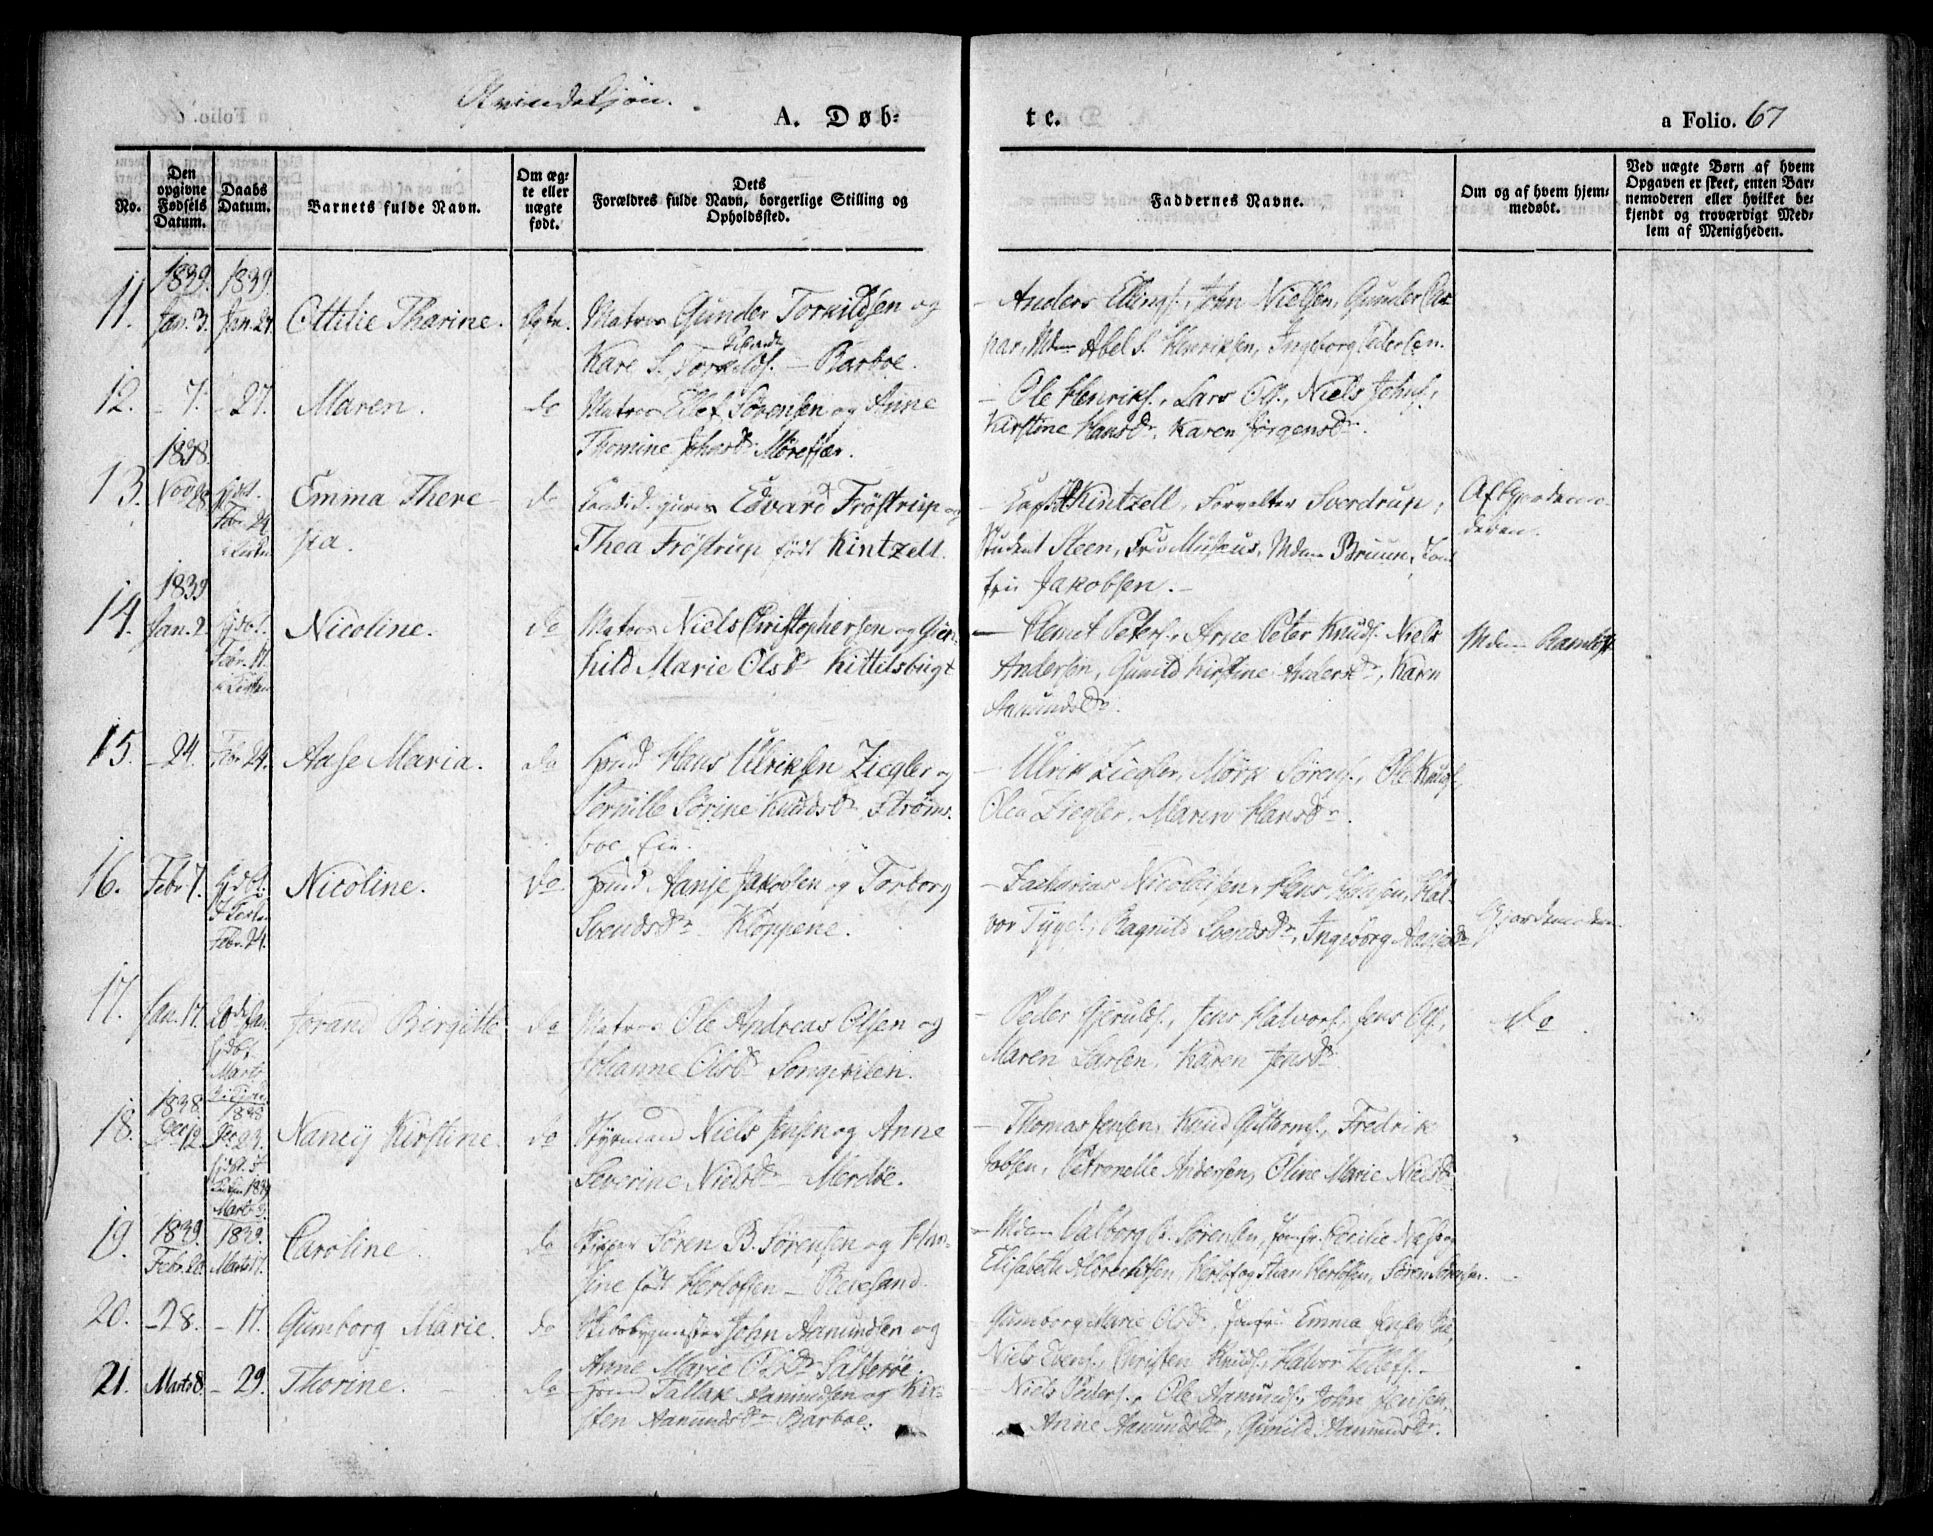 Qvindekjøn.
A. Døb-
te.
a Folio. 67
No.
Den opgivne Fødsels Datum.
Daabs Datum.
Barnets fulde Navn.
Om ægte eller uægte født.
Dets
Forældres fulde Navn, borgerlige Stilling og Opholdssted.
Faddernes Navne.
Om og af hvem hjemmedøbt.
Ved uægte Børn af hvem Opgaven er skeet, enten Barnemoderen eller hvilket bekjendt og troværdigt Medlem af Menigheden.
1839. 1839
11. Jan. 3. Jan. 27. Ottilie Tharine. Ægte. Matros Gunder Torkildsen og
Kare S. Torkilds. — Barboe.
— Anders Ellings., John Nielsen, Gunder Cas
par, Mdm Abel S. Henriksen, Ingeborg Pedersen.
12. - 7. - 27. Maren. do Matros Ellef Sørensen og Anne
Thomine Johnsdr. Mørefjær.
— Ole Henriks., Lars Ols., Niels Johns.,
Kirstine Hansdr., Karen Jørgensdr.
1838.
13. Novb. 28. Febr. 24 Emma There-
sia. do Candid. juris Edvard Frøstrup og
Thea Frøstrup født Kintzell.
Kintzell, Forvalter Sverdrup,
Student Steen, Fru Musæus, Mdm Bruun, Jom
fru Jakobsen. —
Af Gjordemo-
deren.
1839
14. Jan. 2. Hjdbt. Febr. 17. Nicoline. do Matros Niels Christophersen og Gun-
hild Marie Olsdr. Kittilsbugt
— Clemet Peters., Arne Peter Knuds. Niels
Andersen, Gunild Kirstine Andersdr., Karen
Aanundsdr.
Mdm
15. - 24. Febr. 24. Aase Maria. do Hmd Hans Ulriksen Ziegler og
Pernille Sørine Knudsdr. Strøms-
boe Eie.
— Ulrik Ziegler, Mørk Sørens., Ole Knuds.
Olea Ziegler, Maren Hansdr.
16. Febr 7. Hjdbt. Febr. 24. Nicoline. do Hmd Aanje Jakobsen og Torborg
Svendsdr. Kloppene.
— Zacharias Nicolaisen, Hans Hal-
vor Tyges., Ragnild Svendsdr., Ingeborg
Gjordemoderen.
17. Jan. 17. 20de Jan. Hjdbt. Marts Jorand Birgitte do Matros Ole Andreas Olsen og
Johanne Olsdr. Songekilen.
— Peder Gjeruld s., Jens Halvors., Jens Ols.,
Maren Larsen, Karen Jensdr.
do
1838. 1838
18. Dec. 12. Dec. 23. Nancy Kirstine. do Styrmand Niels Jensen og Anne
Severine Nielsdr. — Merdøe.
1839 Marts 3.
— Thomas Jensen, Knud Guttorms., Fredrik
Jobsen, Petronelle Andersen, Oline Marie Nielsdr.
1839. 1839.
19. Febr. 20. Marts 17. Caroline. do Skipper Søren B. Sørensen og Han-
sine født Herlofsen — Revesand.
— Mdm Valborg B. Sørensen, Jomfr. Cecilie
Elisabeth Albrechtsen, Herlof og Stian Herlofsen, Søren Sørensen.
20. - 28. - 17. Gumborg Marie. do Skibsbygmester John Aanundsen og
Anne Marie Olsdr. Salterøe.
Gumborg Marie Olsdr., Jomfru Emma
Niels Evens., Christen Knuds., Halvor Tellefs.
21. Marts 8. - 29. Thorine. do Hmd Tallak Aanundsen og Kir-
sten Aanundsdr. Barboe.
— Niels Peders., Ole Aanunds., John Jensen,
Anne Aanundsdr., Gunild Aanundsdr.